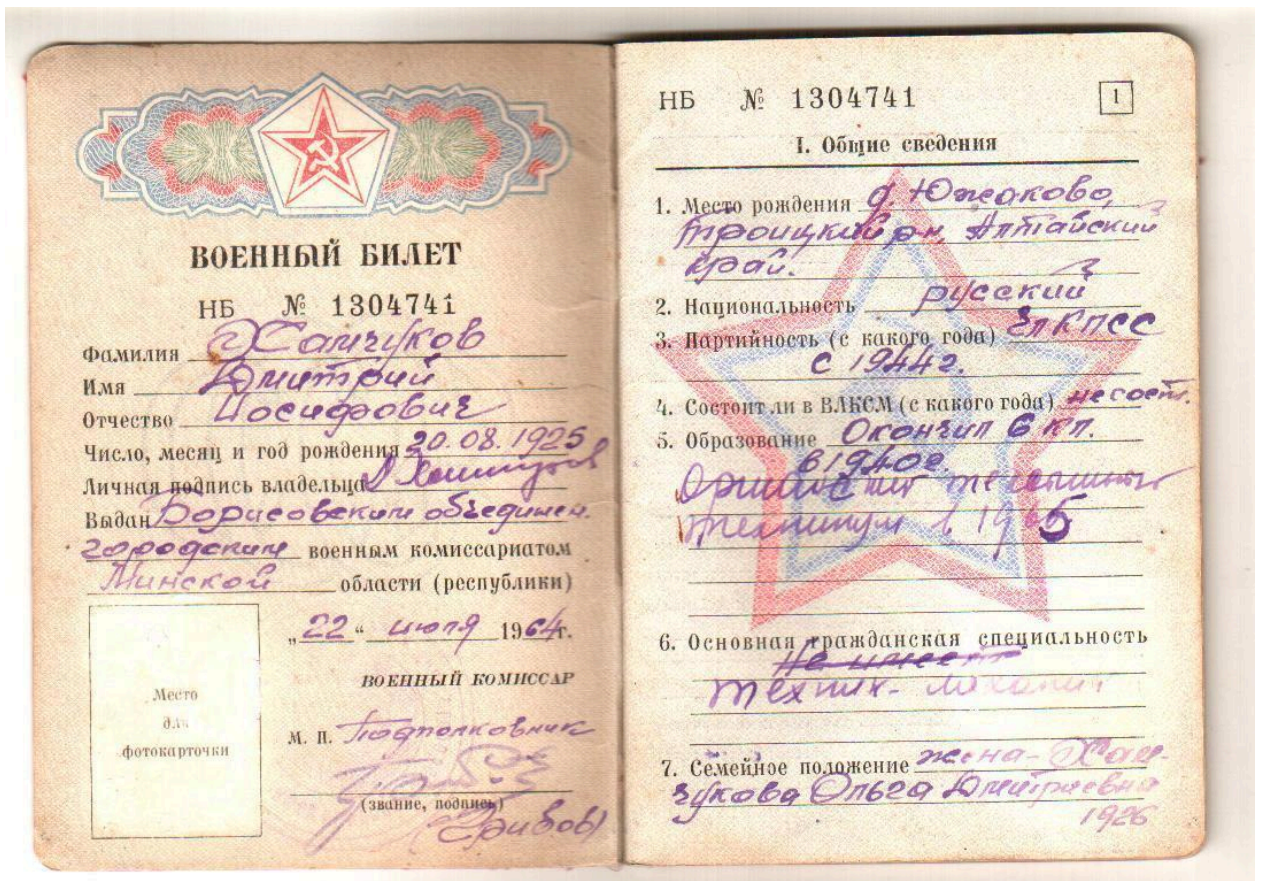 ВОЕННЫЙ БИЛЕТ
НБ № 1304741
Фамилия Хамчуков
Имя Дмитрий
Отчество Иосифович
Число, месяц и год рождения 20.08.1925
Личная подпись владельца
Выдан Борисовским объединен.
городским военным комиссариатом
Минской области (республики)
„22“ июля 1964г.
ВОЕННЫЙ КОМИССАР
Место
для
фотокарточки
М. П. Подполковник
(звание, подпись)
(Грибов)
НБ № 1304741
1
I. Общие сведения
1. Место рождения д. Южаково,
Троицкий рн, Алтайский
край.
2. Национальность русский
3. Партийность (с какого года) чл КПСС
с 1944г.
4. Состоит ли в ВЛКСМ (с какого года) не сост.
5. Образование Окончил 6 кл.
в 1940г.
техникум в 1965
6. Основная гражданская специальность
Не имеет
техник-
7. Семейное положение жена- Хам-
чукова Ольга Дмитриевна
1926